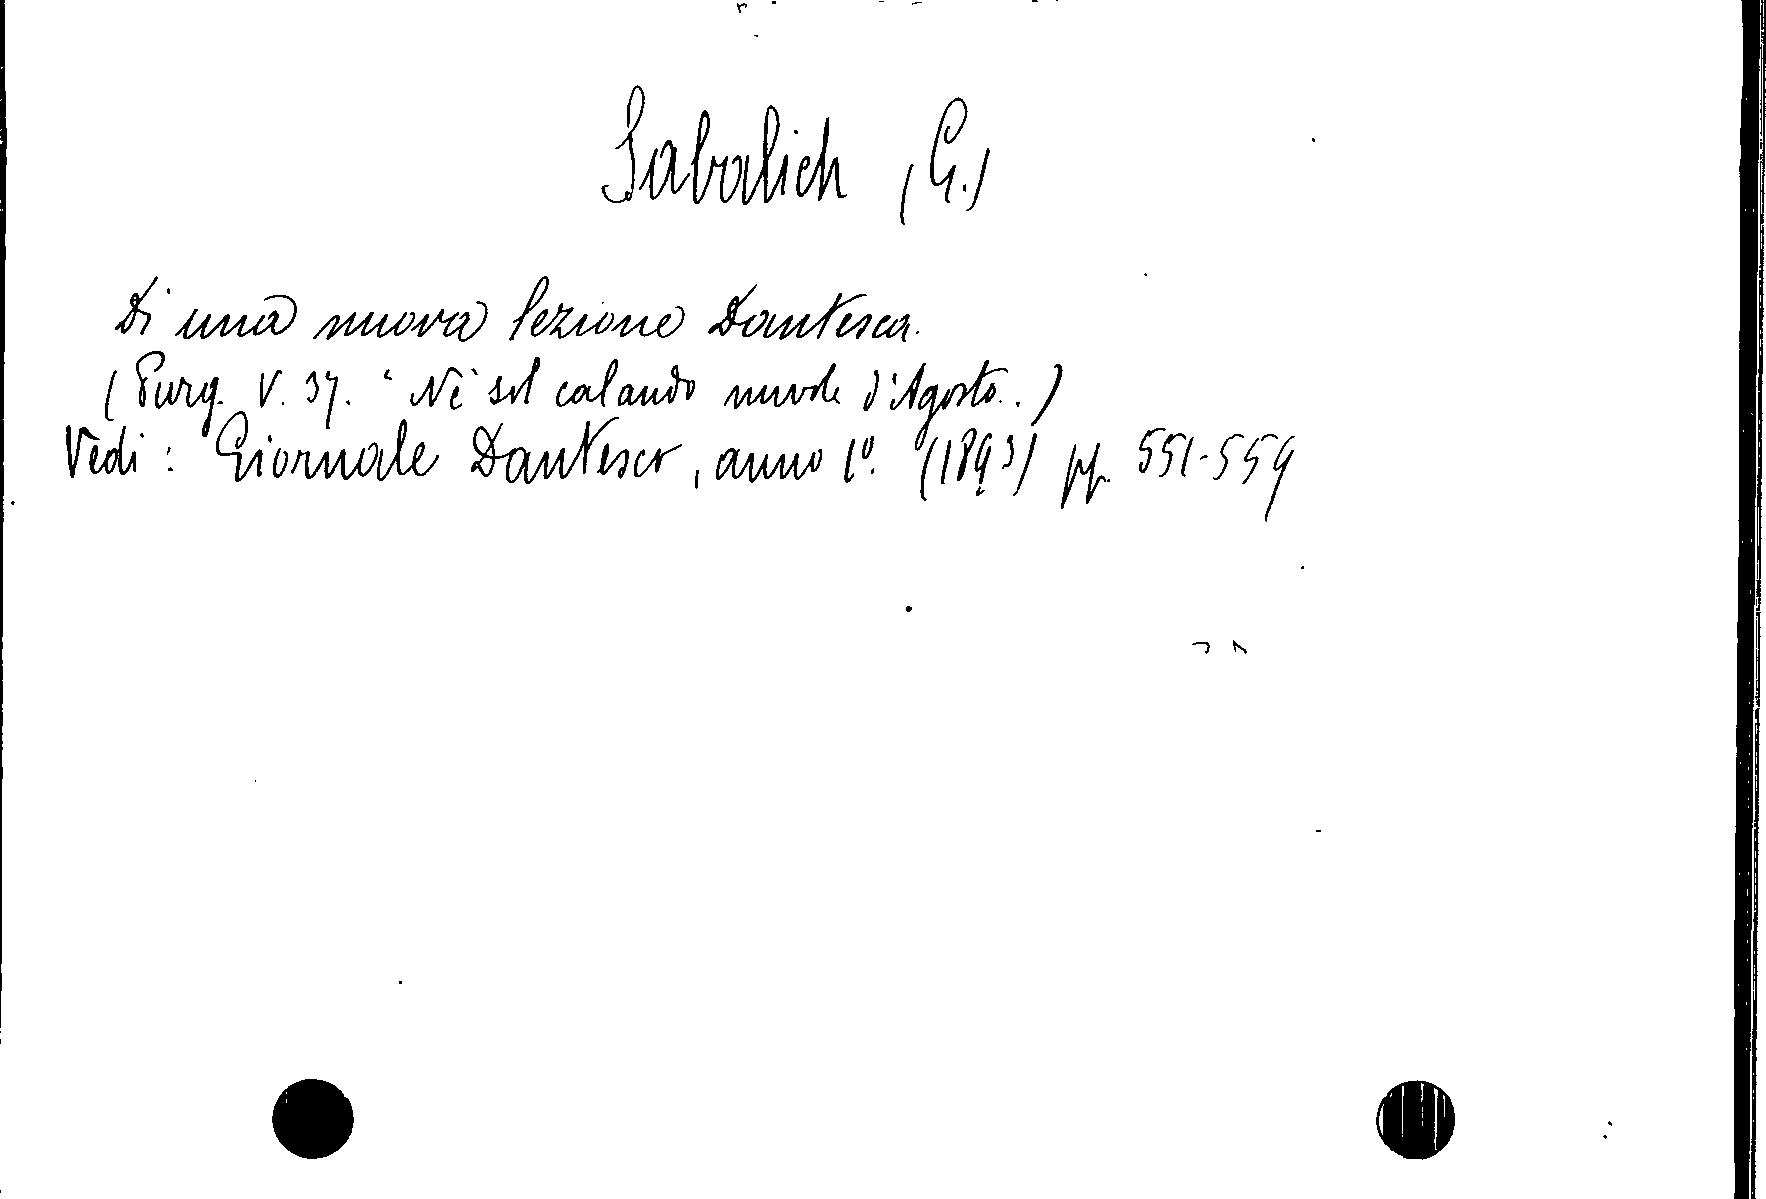 Sabalich (G.)
Di una nuova lezione Dantesca.
(Purg. V. 37. "Nè sol calando nuvole d'Agosto..)
Vedi: Giornale Dantesco, anno 1º. (1893) pp. 551-559